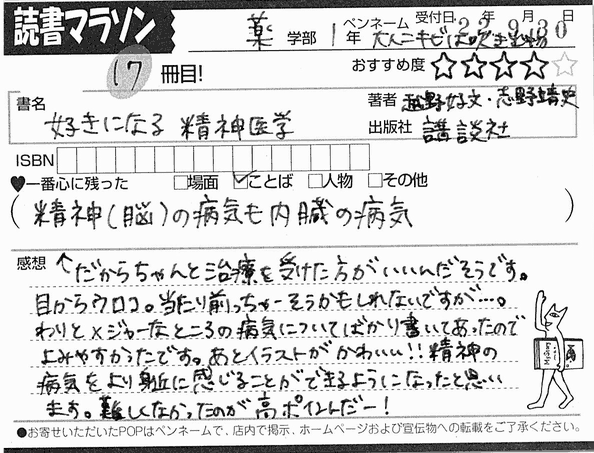 読書マラソン
薬 学部 1年 ペンネーム 大人ニキビは吹き出物 受付日 22年 9月 30日
17 冊目! おすすめ度 ★★★★☆
書名 好きになる 精神医学
著者 越野好文・志野靖史
出版社 講談社
ISBN
♥一番心に残った □場面 ☑ことば □人物 □その他
(精神(脳)の病気も内臓の病気)
感想 ↑だからちゃんと治療を受けた方がいいんだそうです。
目からウロコ。当たり前っちゃーそうかもしれないですが…。
わりとメジャーなところの病気についてばかり書いてあったので
よみやすかったです。あとイラストがかわいい!!精神の
病気をより身近に感じることができるようになったと思い
ます。難しくなかったのが高ポイントだー!
●お寄せいただいたPOPはペンネームで、店内で掲示、ホームページおよび宣伝物への転載をご了承ください。